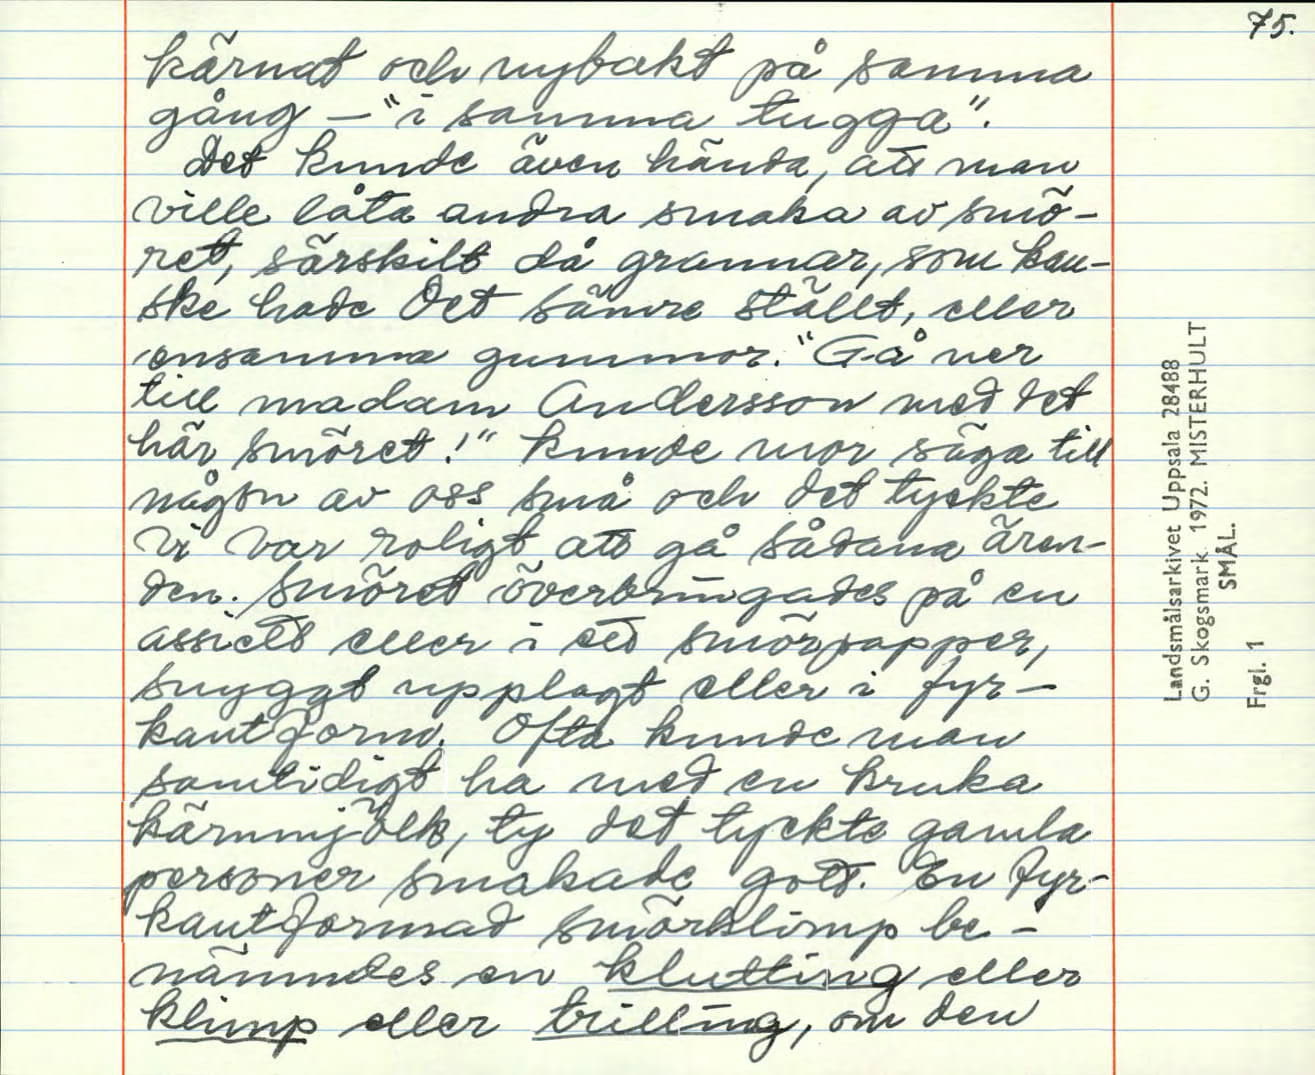 75.
kärnat och nybakt på samma
gång — "i samma tugga".
Det kunde även hända, att man
ville låta andra smaka av smö-
ret, särskilt då grannar, som kan-
ske hade det sämre ställt, eller
ensamma gummor. "Gå ner
till madam Andersson med det
här smöret!" kunde mor säga till
någon av oss små och det tyckte
vi var roligt att gå sådana ären-
den. Smöret överbringades på en
assiett eller i ett smörpapper,
snyggt upplagt eller i fyr-
kantform. Ofta kunde man
samtidigt ha med en kruka
kärnmjölk, ty det tyckte gamla
personer smakade gott. En fyr-
kantformad smörklimp be-
nämndes en klutting eller
klimp eller trilling, om den
Landsmålsarkivet Uppsala 28488
G. Skogsmark 1972. MISTERHULT
SMÅL.
Frgl. 1